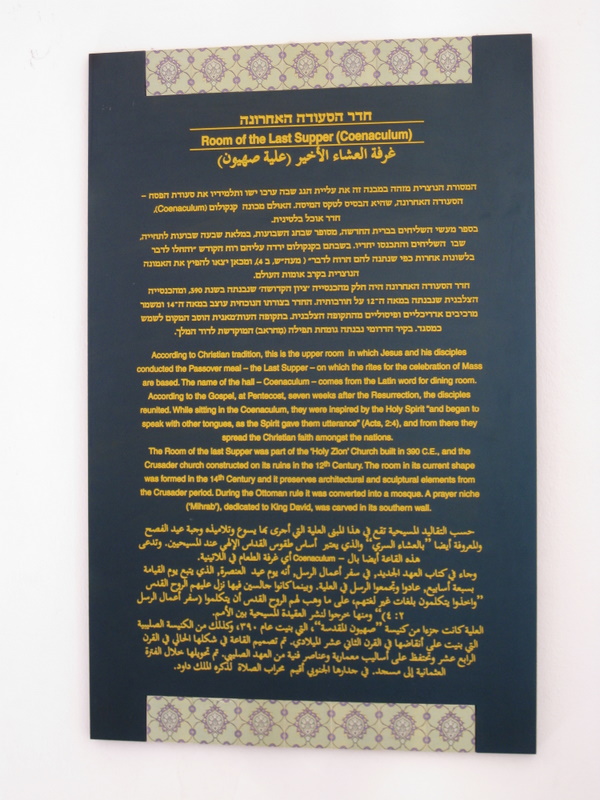 חדר הסעודה האחרונה
Room of the Last Supper (Coenaculum)
غرفة العشاء الأخير (علية صهيون)
המסורת הנוצרית מזהה במבנה זה את עליית הגג שבה ערכו ישו ותלמידיו את סעודת הפסח –
הסעודה האחרונה, שהיא הבסיס לטקס המיסה. האולם מכונה קנקולום (Coenaculum),
חדר אוכל בלטינית.
בספר מעשי השליחים בברית החדשה, מסופר שבחג השבועות, במלאת שבעה שבועות לתחייה,
שבו השליחים והתכנסו יחדיו. בשבתם בקנקולום ירדה עליהם רוח הקודש "והחלו לדבר
בלשונות אחרות כפי שנתנה להם הרוח לדבר" ( מעה"ש, ב 4), ומכאן יצאו להפיץ את האמונה
הנוצרית בקרב אומות העולם.
חדר הסעודה האחרונה היה חלק מהכנסייה 'ציון הקדושה' שנבנתה בשנת 390, ומהכנסייה
הצלבנית שנבנתה במאה ה־12 על חורבותיה. החדר בצורתו הנוכחית עוצב במאה ה־14 ומשמר
מרכיבים אדריכליים ופיסוליים מהתקופה הצלבנית. בתקופה העות'מאנית הוסב המקום לשמש
כמסגד. בקיר הדרומי נבנתה גומחת תפילה (מחראב) המוקדשת לדוד המלך.
According to Christian tradition, this is the upper room in which Jesus and his disciples
conducted the Passover meal – the Last Supper – on which the rites for the celebration of Mass
are based. The name of the hall – Coenaculum – comes from the Latin word for dining room.
According to the Gospel, at Pentecost, seven weeks after the Resurrection, the disciples
reunited. While sitting in the Coenaculum, they were inspired by the Holy Spirit "and began to
speak with other tongues, as the Spirit gave them utterance" (Acts, 2:4), and from there they
spread the Christian faith amongst the nations.
The Room of the last Supper was part of the 'Holy Zion' Church built in 390 C.E., and the
Crusader church constructed on its ruins in the 12th Century. The room in its current shape
was formed in the 14th Century and it preserves architectural and sculptural elements from
the Crusader period. During the Ottoman rule it was converted into a mosque. A prayer niche
('Mihrab'), dedicated to King David, was carved in its southern wall.
حسب التقاليد المسيحية تقع في هذا المبنى العلية التي أجرى بها يسوع وتلاميذه وجبة عيد الفصح
والمعروفة أيضا "بالعشاء السري" والذي يعتبر أساس طقوس القداس الإلهي عند المسيحيين. وتدعى
هذه القاعة أيضا بال – Coenaculum أي غرفة الطعام في اللاتينية.
وجاء في كتاب العهد الجديد, في سفر أعمال الرسل, أنه يوم عيد العنصرة, الذي يتبع يوم القيامة
بسبعة أسابيع, عادوا وتجمعوا الرسل في العلية. وبينما كانوا جالسين فيها نزل عليهم الروح القدس
"واخذوا يتكلمون بلغات غير لغتهم, على ما وهب لهم الروح القدس أن يتكلموا (سفر أعمال الرسل
٢: ٤)" ومنها خرجوا لنشر العقيدة المسيحية بين الأمم.
العلية كانت جزءا من كنيسة "صهيون المقدسة", التي بنيت عام ٣٩٠, وكذلك من الكنيسة الصليبية
التي بنيت على أنقاضها في القرن الثاني عشر الميلادي. تم تصميم القاعة في شكلها الحالي في القرن
الرابع عشر وتحتفظ على أساليب معمارية وعناصر فنية من العهد الصليبي. تم تحويلها خلال الفترة
العثمانية إلى مسجد. في جدارها الجنوبي أقيم محراب الصلاة لذكره الملك داود.